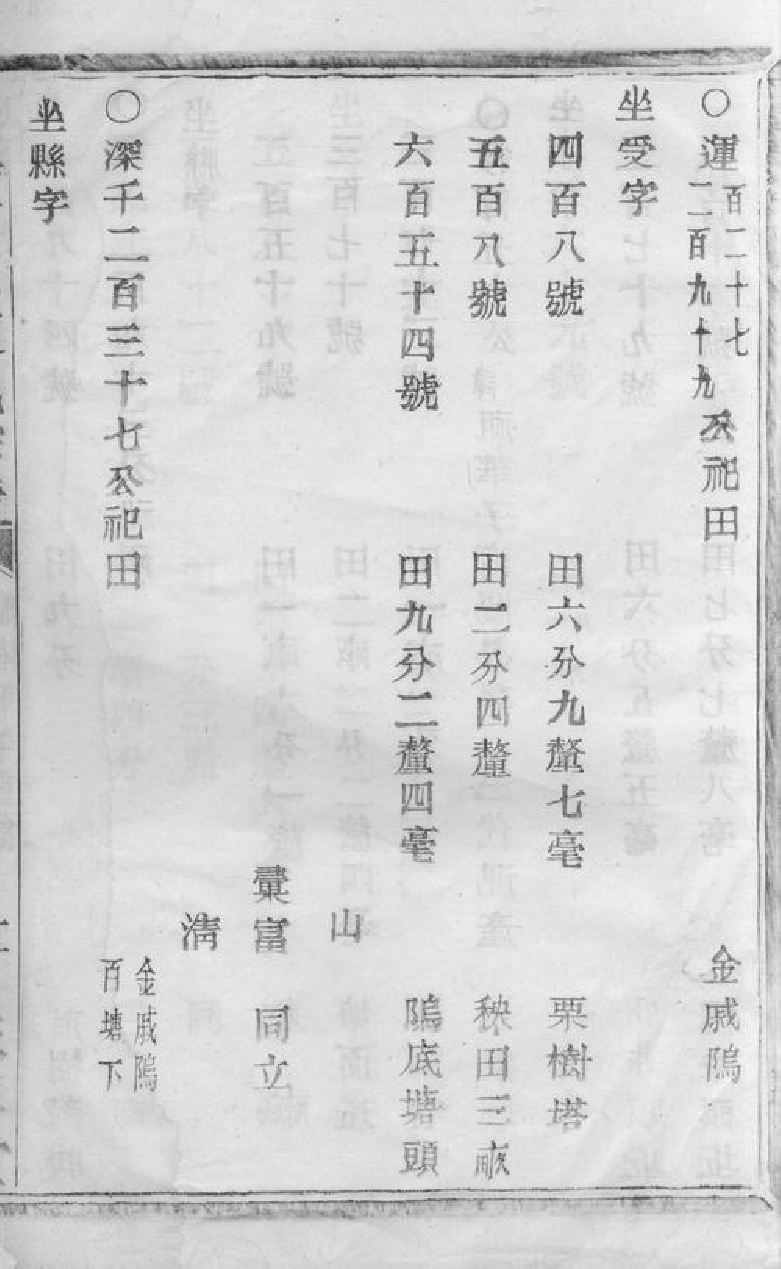 ○運百二十七二百九十九公祀田 金戚隖
坐受字
四百八號 田六分九釐七毫 栗樹塔
五百八號 田二分四釐 秧田三畝
六百五十四號 田九分二釐四毫 隖底塘頭
山
彚富 同立
淸
○深千二百三十七公祀田 金戚隖百塘下
坐縣字